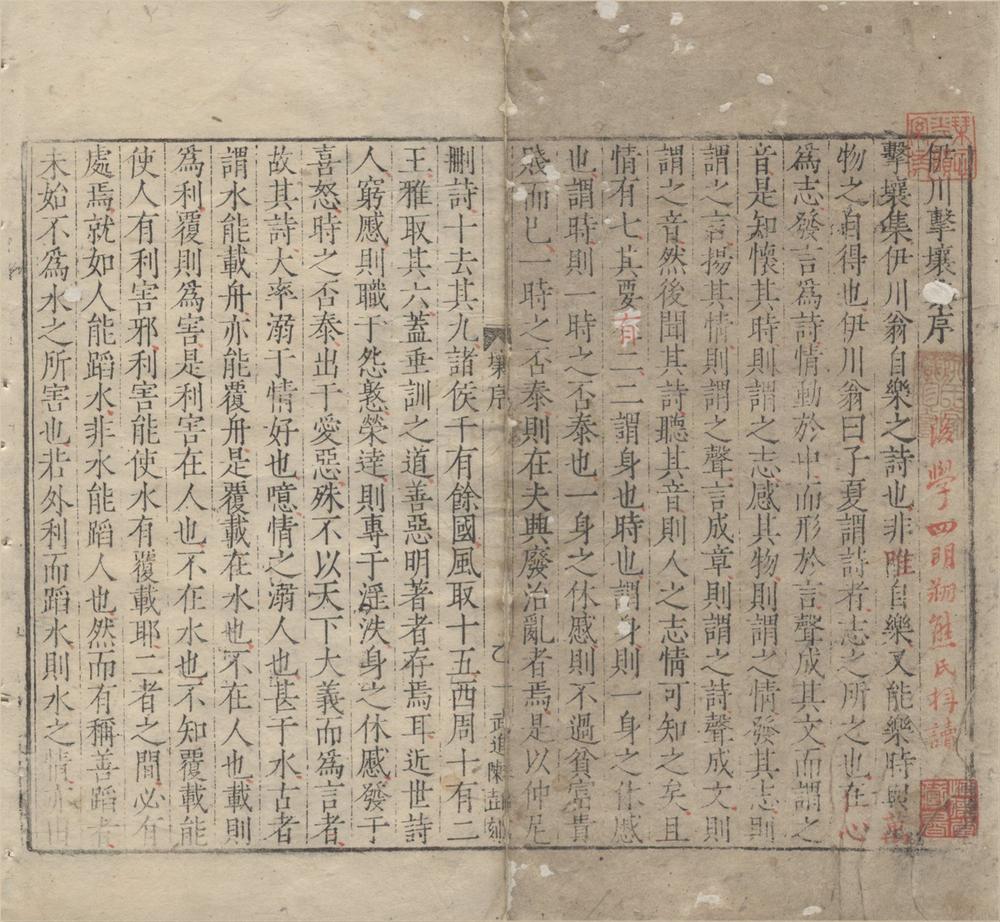 伊川擊壤集序
後學四明朔熊氏拜讀
擊壤集伊川翁自樂之詩也非唯自樂又能樂時與萬
物之自得也伊川翁曰子夏謂詩者志之所之也在心
為志發言為詩情動於中而形於言聲成其文而謂之
音是知懷其時則謂之志感其物則謂之情發其志則
謂之言揚其情則謂之聲言成章則謂之詩聲成文則
謂之音然後聞其詩聽其音則人之志情可知之矣且
情有七其要有二二謂身也時也謂身則一身之休慼
也謂時則一時之否泰也一身之休慼則不過貧富貴
賤而已一時之否泰則在夫興廢治亂者焉是以仲尼
壤序 乙 一 武進陳彭刻
刪詩十去其九諸侯千有餘國風取十五西周十有二
王雅取其六蓋垂訓之道善惡明著者存焉耳近世詩
人窮慼則職于怨憝榮達則專于淫泆身之休慼發于
喜怒時之否泰出于愛惡殊不以天下大義而為言者
故其詩大率溺于情好也噫情之溺人也甚于水古者
謂水能載舟亦能覆舟是覆載在水也不在人也載則
為利覆則為害是利害在人也不在水也不知覆載能
使人有利害邪利害能使水有覆載耶二者之間必有
處焉就如人能蹈水非水能蹈人也然而有稱善蹈者
未始不為水之所害也若外利而蹈水則水之情亦由